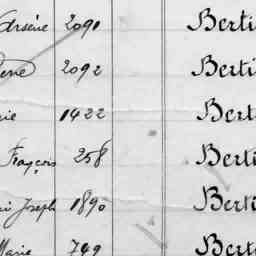 Arsène 2090 Berti
René 2092 Berti
rie 1422 Berti
François 258 Berti
ri Joseph 1890 Berti
Marie 749 Berti